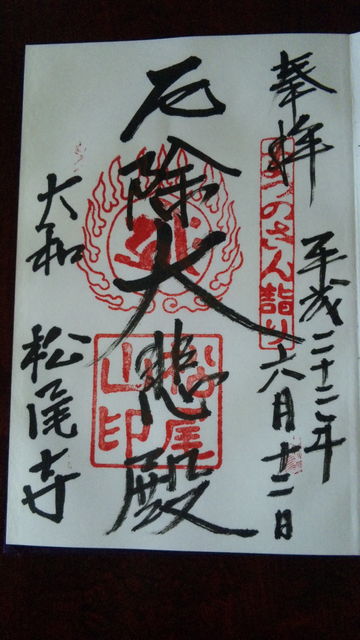 奉拝
まつのさん詣り
平成二十二年
六月十二日
厄除大悲殿
松尾
山印
大和 松尾寺